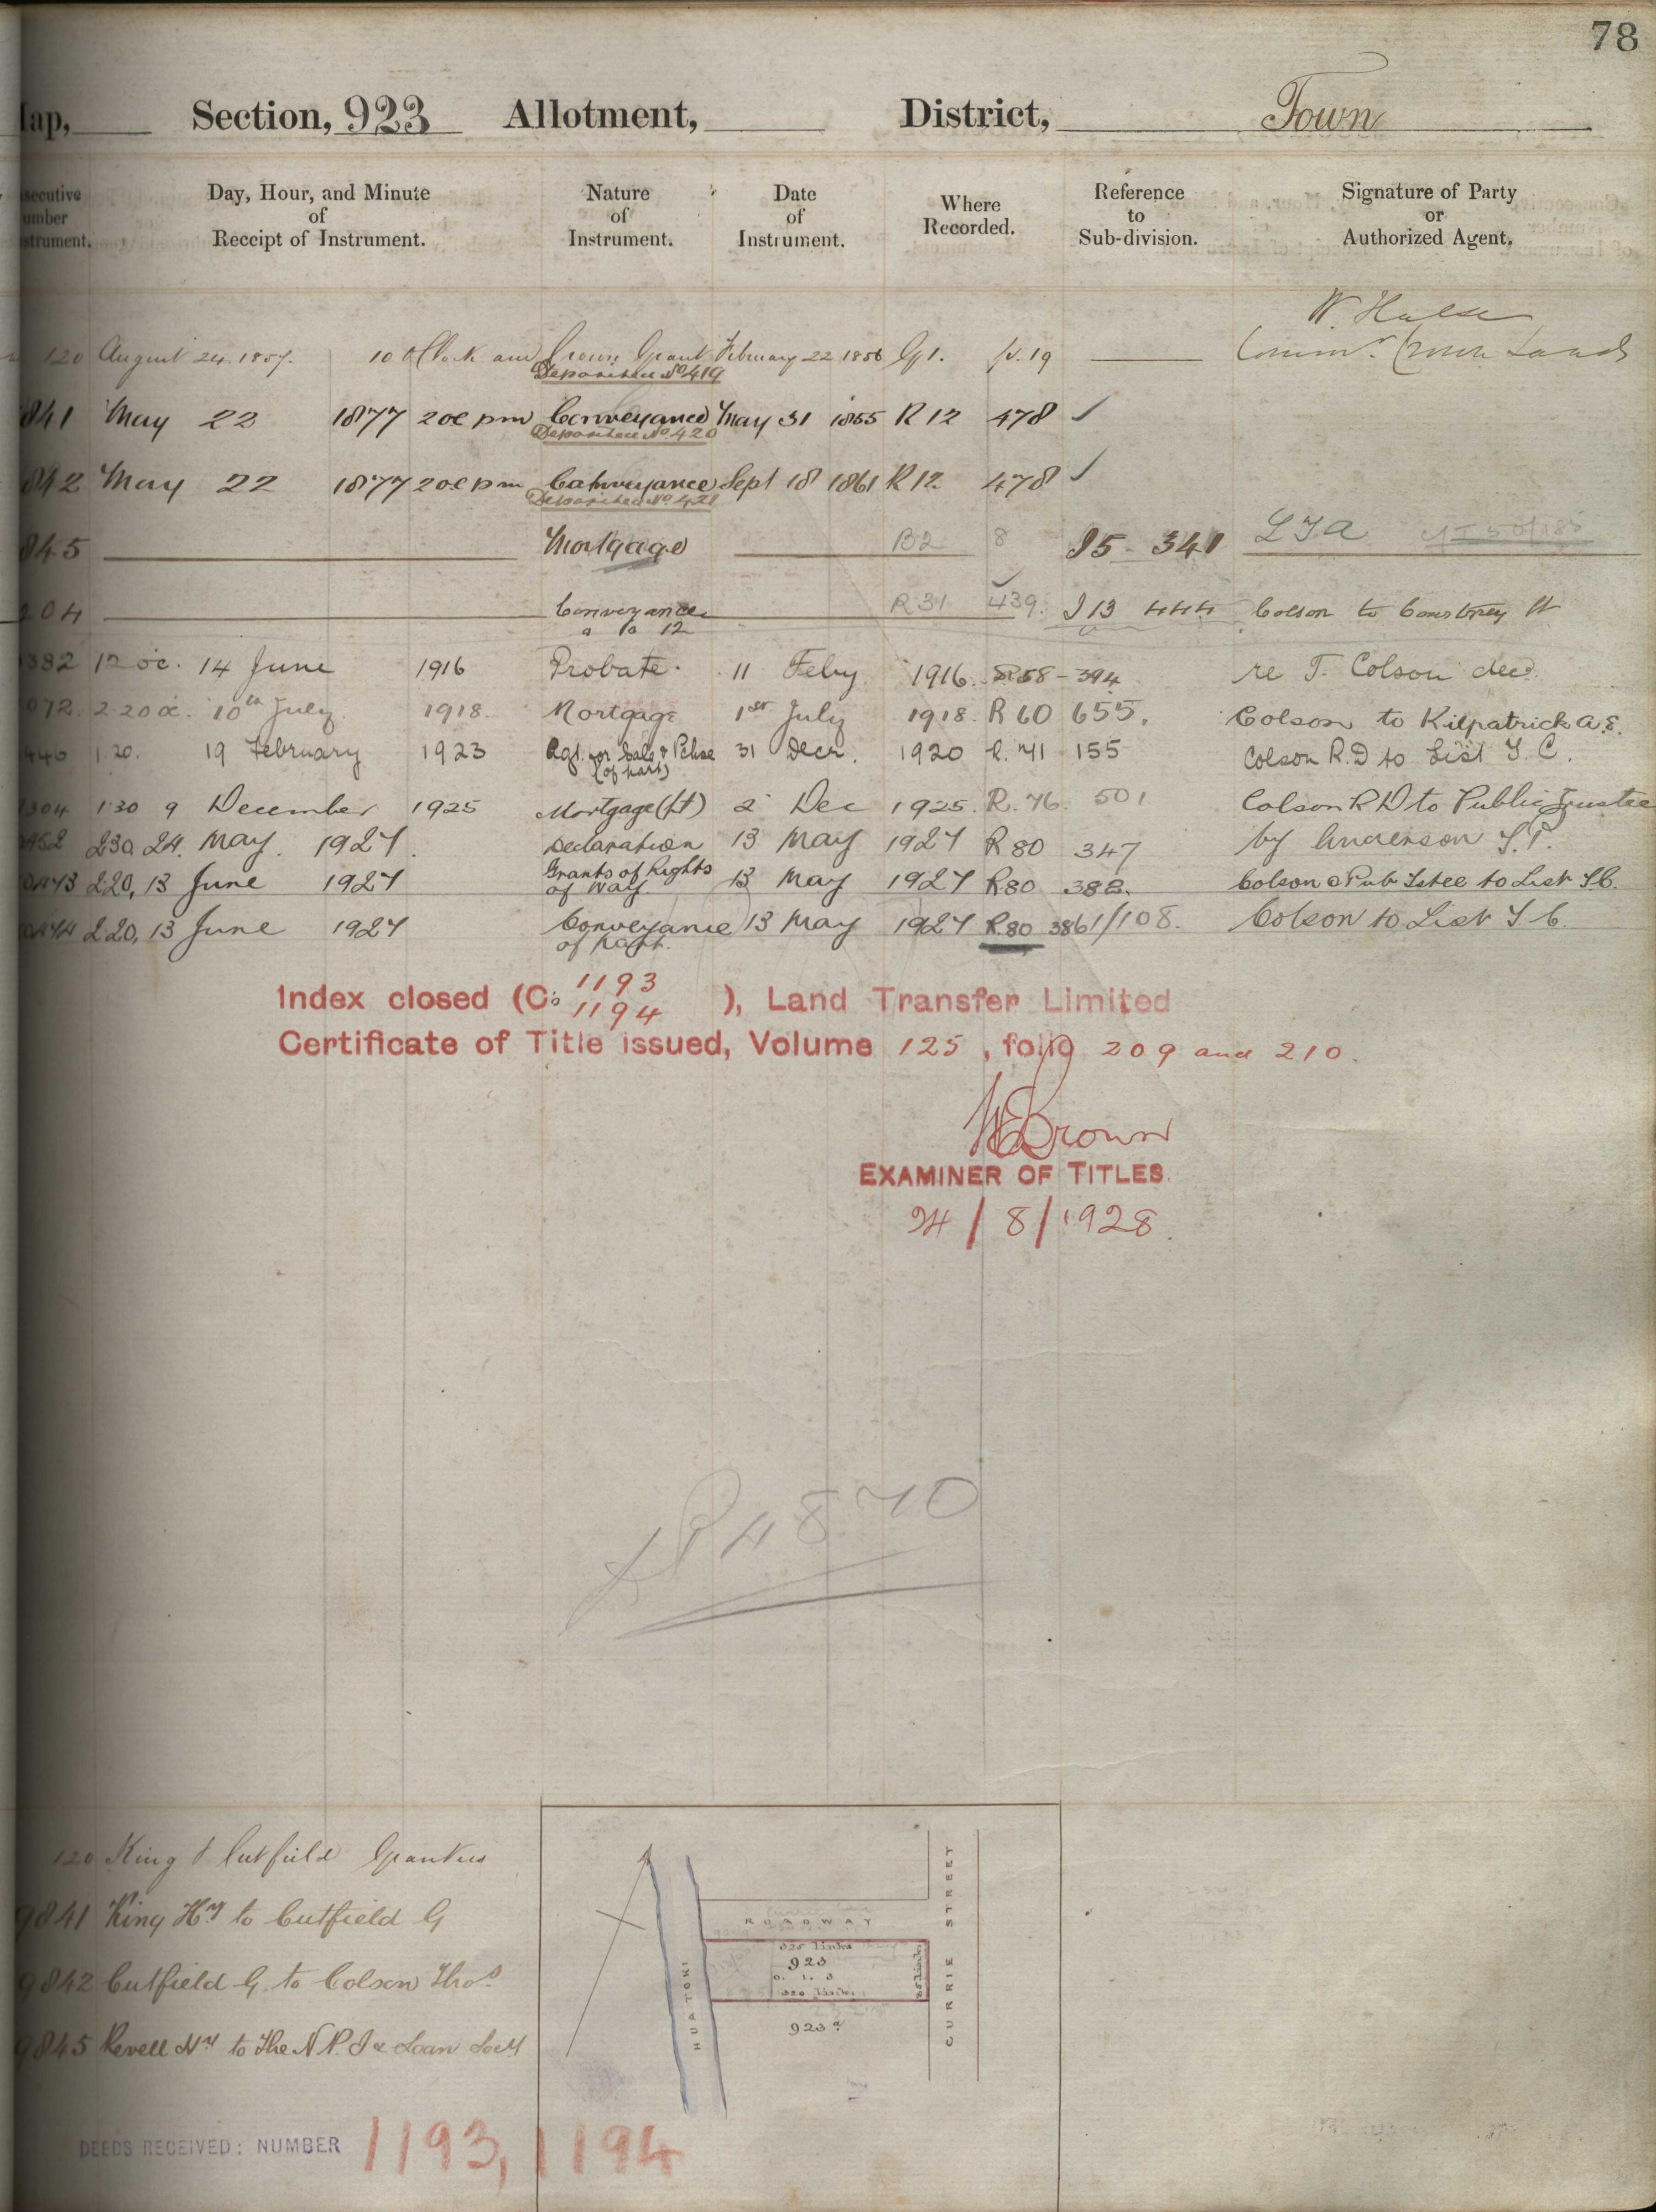 78
Map, Section, 923 Allotment, District, Town
Day, Hour, and Minute of Receipt of Instrument.
Nature of Instrument.
Date of Instrument.
Where Recorded.
Reference to Sub-division.
Signature of Party or Authorized Agent.
W. Halse
120 August 24. 1857. 10 o'Clock am Crown Grant February 22 1856 G1. p. 19 Commr. Crown Lands
Deposited No 419
841 May 22 1877 2 oc pm Conveyance May 31 1855 R 12 478 ✓
Deposited No 420
842 May 22 1877 2 oc pm Conveyance Sept 18 1861 R 12 478 ✓
Deposited No 421
845 Mortgage B2 8 I5 - 341 L T A
204 Conveyance R31 439. I 13 444 Colson to Courtney
a to 12
382 12 oc. 14 June 1916 Probate. 11 Feby 1916. R 58 - 394 re T. Colson decd.
072. 2.20 oc. 10th July 1918. Mortgage 1st July 1918. R 60 655. Colson to Kilpatrick A.E.
446 1.20. 19 February 1923 Agt. for Sale & Pchse 31 Decr. 1920 R. 71 155 Colson R.D to List T. C.
(of part)
304 1.30 9 December 1925 Mortgage (pt) 2 Dec 1925. R. 76. 501 Colson R D to Public Trustee
452 2.30. 24. May. 1927. Declaration 13 May 1927 R 80 347 by Anderson T. P.
0473 2.20, 13 June 1927 Grants of Rights of Way 13 May 1927 R80 382. Colson & Pub Tstee to List T.C.
0474 2.20, 13 June 1927 Conveyance 13 May 1927 R.80 386 1/108. Colson to List T. C.
of part.
Index closed (C: 1193 1194 ), Land Transfer Limited
Certificate of Title issued, Volume 125, folio 209 and 210.
Brown
EXAMINER OF TITLES.
24/8/1928.
4870
120 King & Cutfield Grantees
9841 King Hy to Cutfield G
9842 Cutfield G. to Colson Thos
9845 Revell Wm to The N P. I & Loan Socy
ROADWAY
325 links
923
0. 1. 3
320 links
923a
HUATOKI
CURRIE STREET
DEEDS RECEIVED: NUMBER 1193, 1194